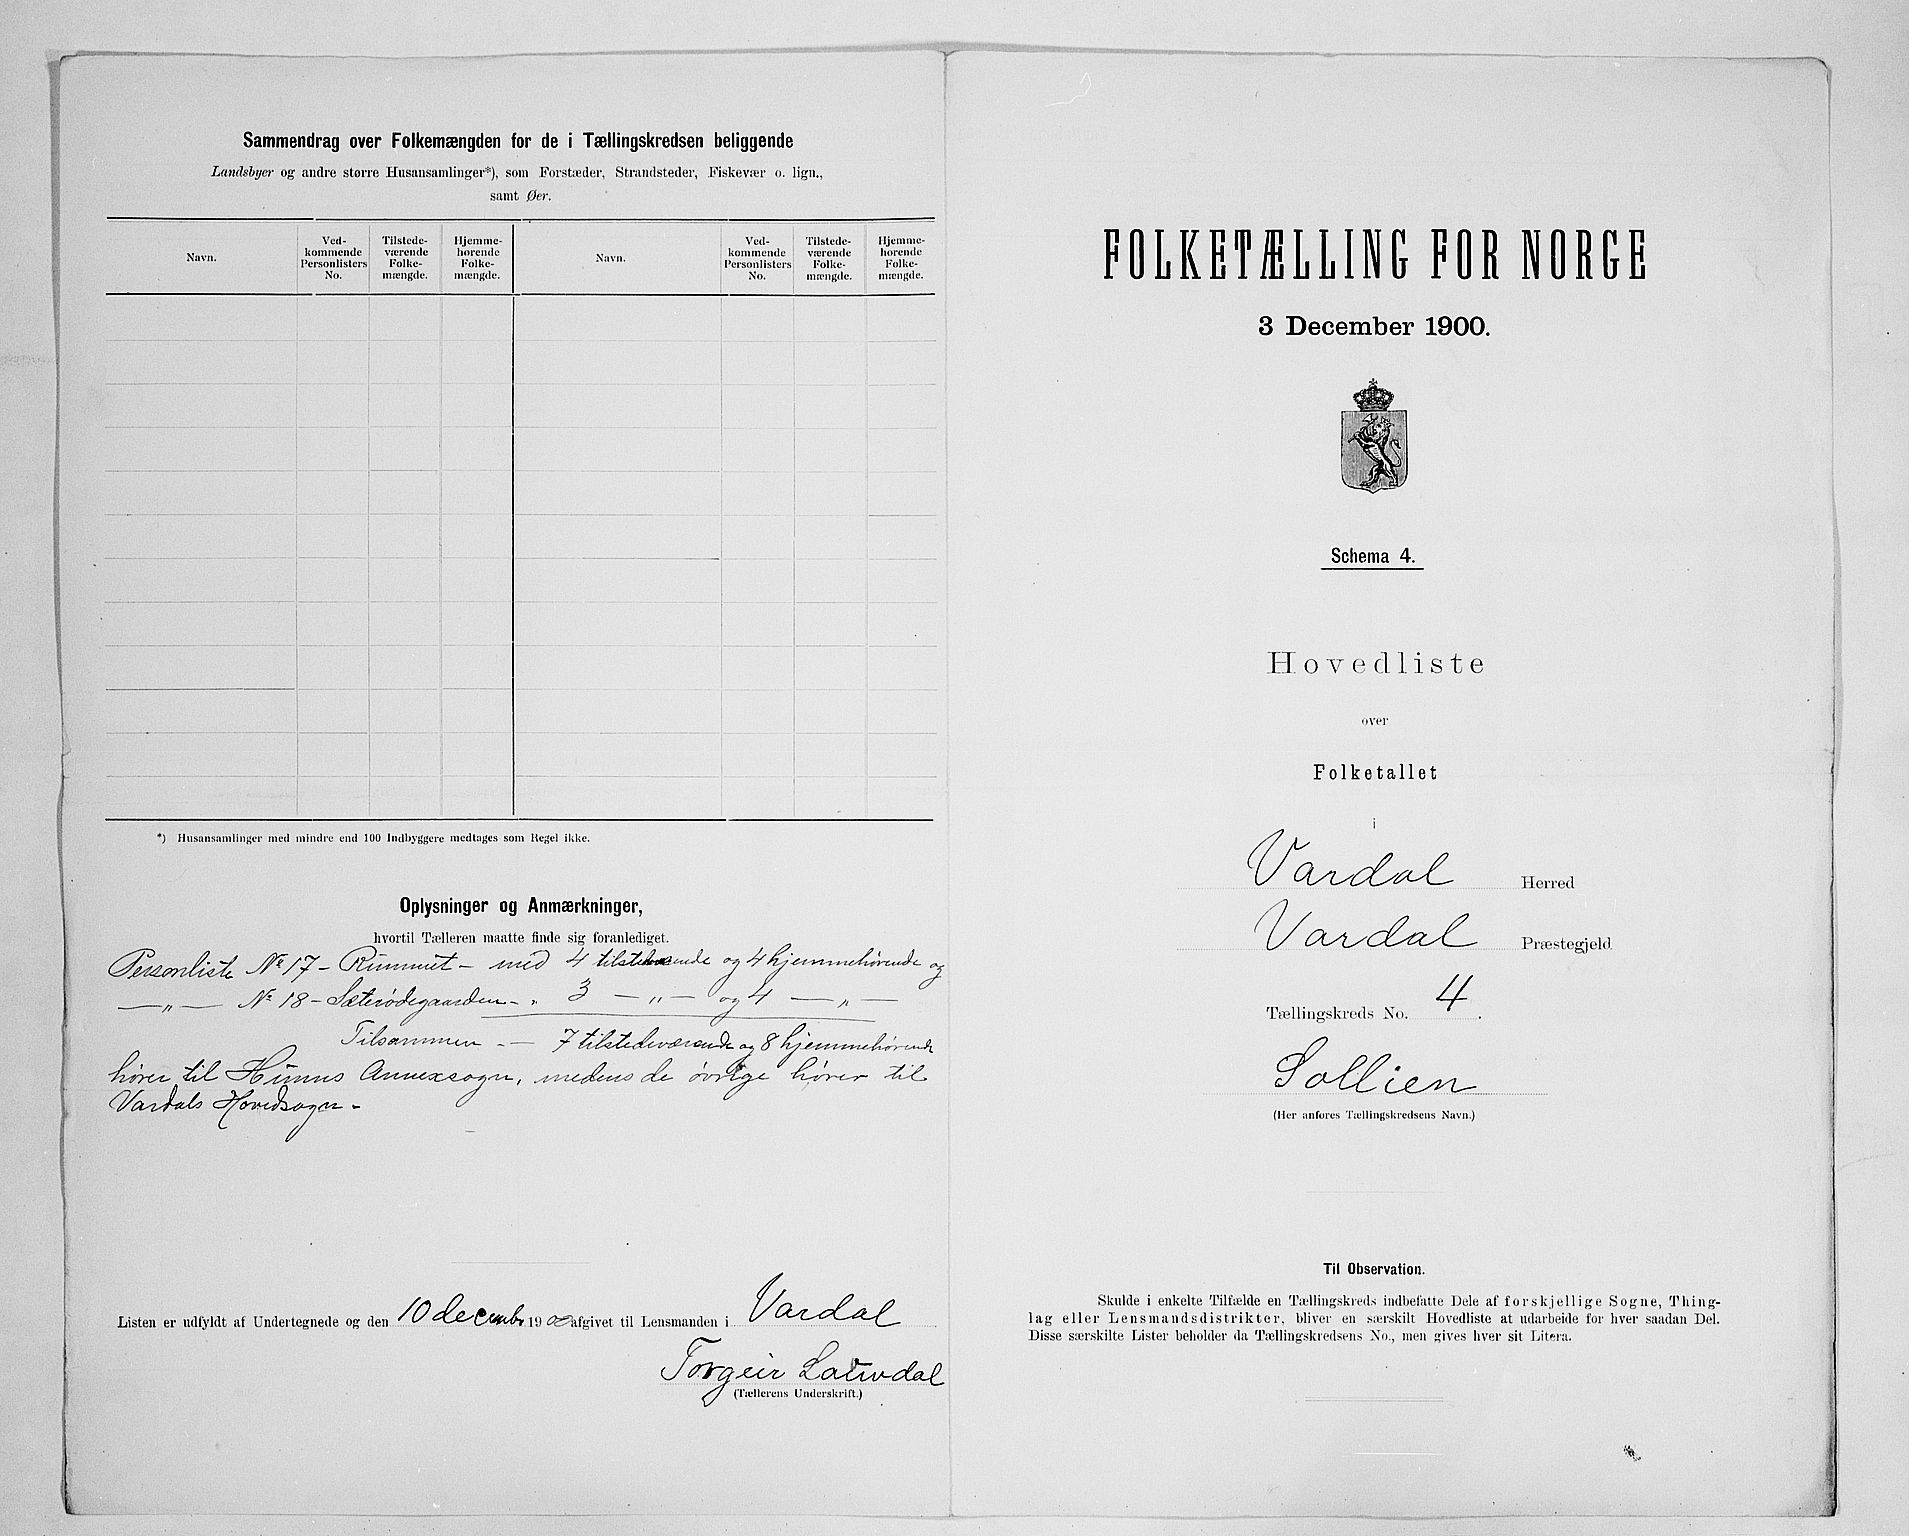 Sammendrag over Folkemængden for de i Tællingskredsen beliggende
Landsbyer og andre større Husansamlinger*), som Forstæder, Strandsteder, Fiskevær o. lign.,
samt Øer.
Navn.
Ved-
kommende
Personlisters
No.
Tilstede-
værende
Folke-
mængde.
Hjemme-
hørende
Folke-
mængde.
Navn.
Ved-
kommende
Personlisters
No.
Tilstede-
værende
Folke-
mængde.
Hjemme-
hørende
Folke-
mængde.
*) Husansamlinger med mindre end 100 Indbyggere medtages som Regel ikke.
Oplysninger og Anmærkninger,
hvortil Tælleren maatte finde sig foranlediget.
Personliste No 17 – – med 4 tilstedeværende og 4 hjemmehørende og
— „ — No 18 – Sæterødegaarden – „ 3 — „ — og 4 — „ —
Tilsammen – — 7 tilstedeværende og 8 hjemmehørende
hører til Hunns Annexsogn, medens de øvrige hører til
Vardals Hovedsogn –
Listen er udfyldt af Undertegnede og den 10 december 1900 afgivet til Lensmanden i Vardal
Torgeir
(Tællerens Underskrift.)
FOLKETÆLLING FOR NORGE
3 December 1900.
Schema 4.
Hovedliste
over
Folketallet
i
Vardal Herred
Vardal Præstegjeld
Tællingskreds No. 4.
Sollien
(Her anføres Tællingskredsens Navn.)
Til Observation.
Skulde i enkelte Tilfælde en Tællingskreds indbefatte Dele af forskjellige Sogne, Thing-
lag eller Lensmandsdistrikter, bliver en særskilt Hovedliste at udarbeide for hver saadan Del.
Disse særskilte Lister beholder da Tællingskredsens No., men gives hver sit Litera.